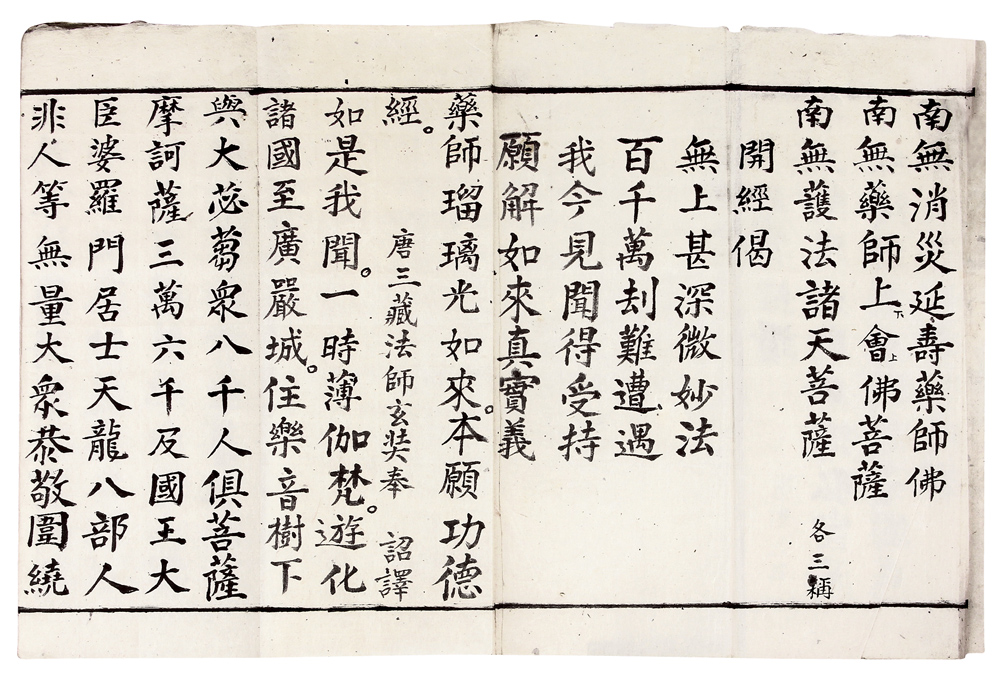 南無消災延壽藥師佛
南無藥師上會佛菩薩
南無護法諸天菩薩 各三稱
開經偈
無上甚深微妙法
百千萬刦難遭遇
我今見聞得受持
願解如來真實義
藥師瑠璃光如來。本願功德
經。 唐三藏法師玄奘奉 詔譯
如是我聞。一時薄伽梵。遊化
諸國至廣嚴城。住樂音樹下
與大苾蒭眾八千人俱菩薩
摩訶薩三萬六千及國王大
臣婆羅門居士天龍八部人
非人等無量大眾恭敬圍繞